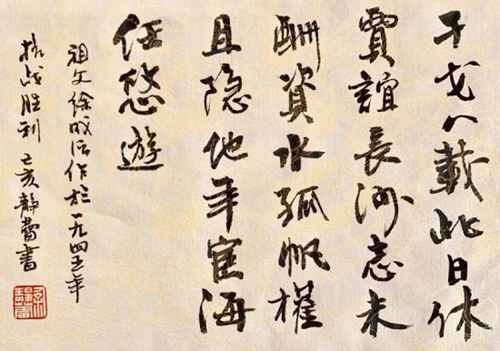 干戈八載此日休
賈誼長沙志未
酬資水孤帆權
且隐他年宦海
任悠遊
祖父徐作於一九四五年
抗战胜利 己亥静蕾書